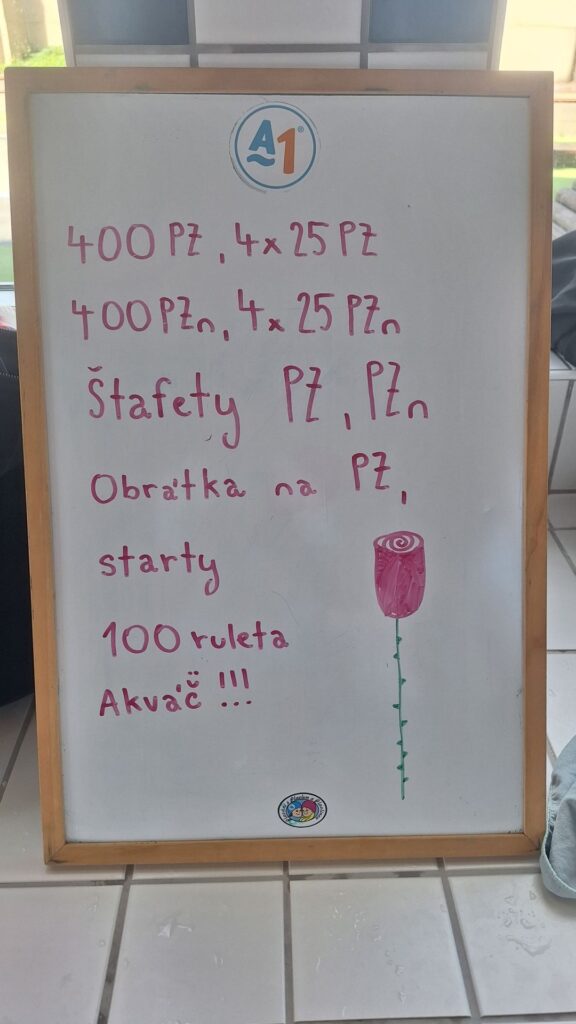 A1
400 PZ, 4x25 PZ
400 PZn, 4x 25 PZn
Štafety PZ, PZn
Obrátka na PZ,
starty
100 ruleta
Akváč !!!